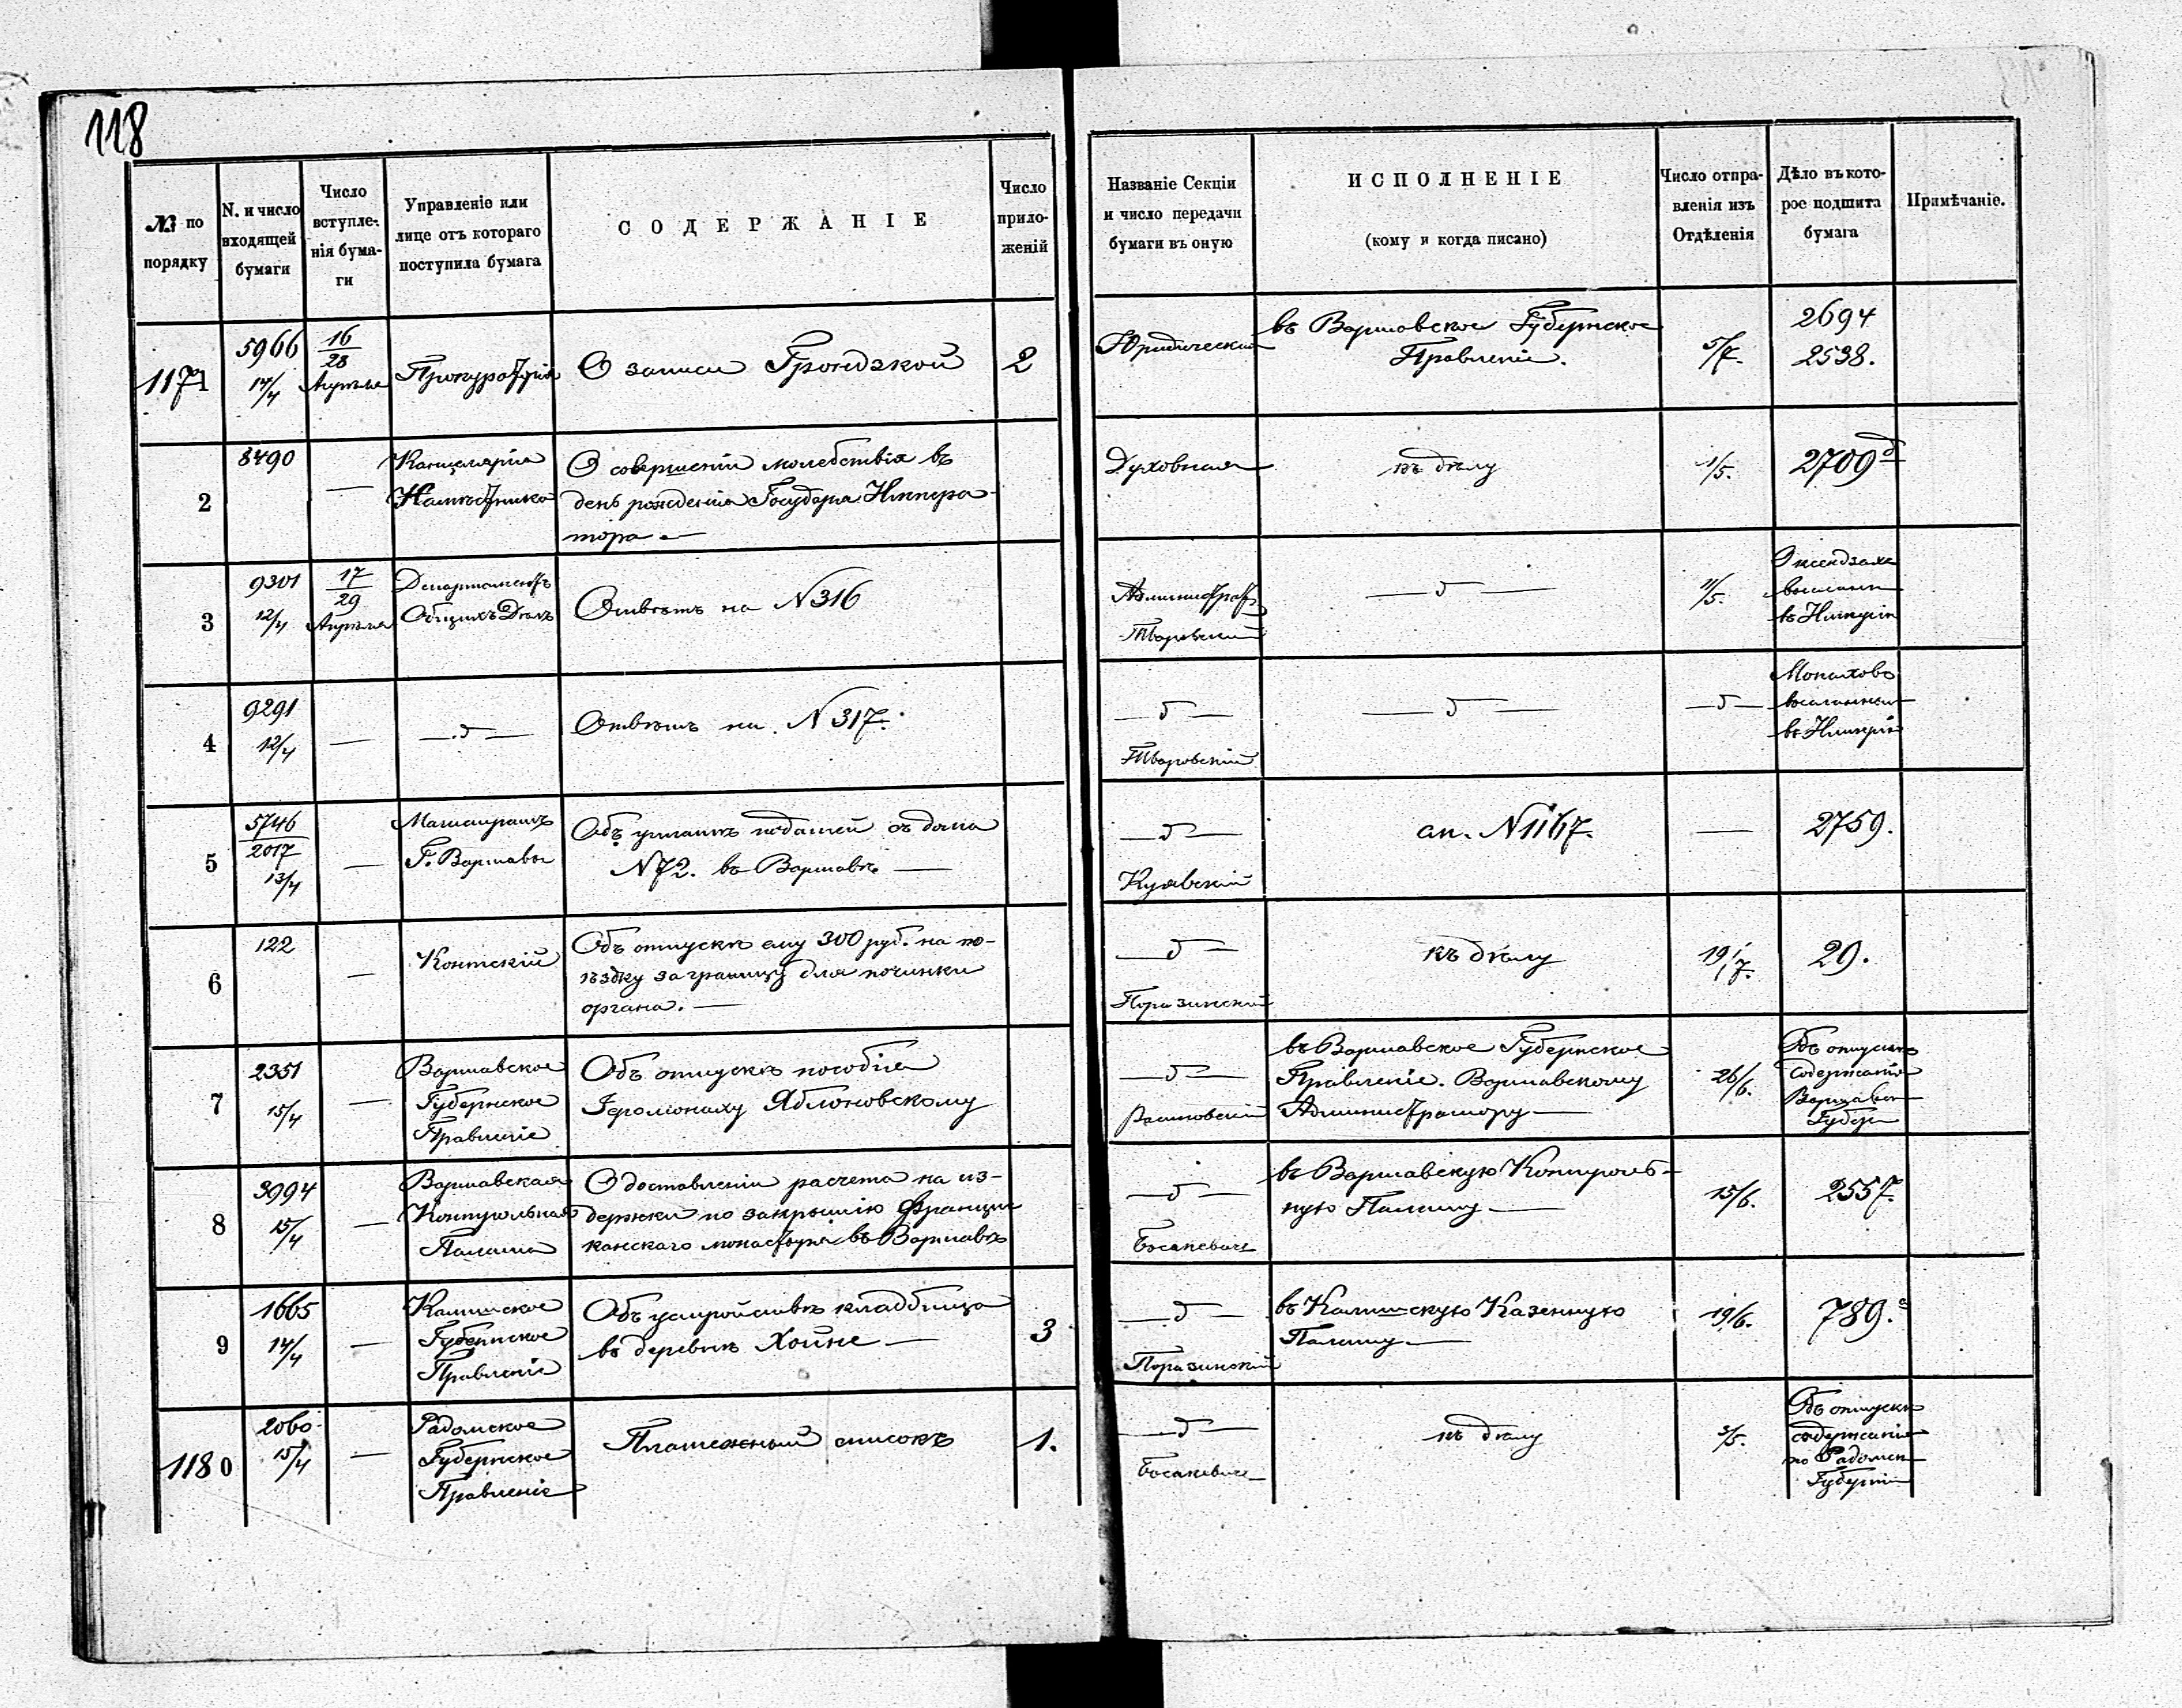 118
№ по порядку
N. и число входящей бумаги
Число вступле-нія бума-ги
Управленіе или лице отъ котораго поступила бумага
СОДЕРЖАНІЕ
Число прило-женій
Названіе Секціи и число передачи бумаги въ оную
ИСПОЛНЕНІЕ
(кому и когда писано)
Число отпра-вленія изъ Отдѣленія
Дѣло въ кото-рое подшита бумага
Примѣчаніе.
1171
5966
14/4
16/28 Апрѣля
Прокураторія
О записи Грондзкой
2
Юридический
въ Варшавское Губернское
Правленіе.
5/7.
2694
2538.
2
8490
—
Канцелярія
Намѣстника
О совершеніи молебствія въ
день рожденія Государя Импера-
тора. —
Духовная
къ дѣлу
1/5.
2709 д
3
9301
12/4
17/29 Апрѣля
Департаментъ
Общихъ Дѣлъ
Отвѣтъ на N 316
Администрат.
Тваровский
— " —
11/5.
О ксендзахъ
высланн
въ Имперію
4
9291
12/4
—
— " —
Отвѣтъ на N 317.
— " —
Тваровскій
— " —
— " —
Монаховъ
высланныхъ
въ Имперію
5
5746
2017
13/4
—
Магистратъ
Г. Варшавы
Объ уплатѣ податей съ дома
N 72. въ Варшавѣ —
— " —
Куявскій
ак. N 1167.
—
2759.
6
122
—
Контскій
Объ отпускѣ ему 300 руб. на по-
ѣздку за границу для починки
органа. —
— " —
Поразинский
къ дѣлу
19/7.
29.
7
2351
15/4
—
Варшавское
Губернское
Правленіе
Объ отпускѣ пособія
Іеромонаху Яблоновскому
— " —
въ Варшавское Губернское
Правленіе. Варшавскому
Администратору —
26/6.
Объ отпускѣ
содержанія
Варшавск
Губер
8
3994
15/4
—
Варшавская
Контрольная
Палата
О доставленіи расчета на из-
держки по закрытію Францис
канскаго монастыря въ Варшавѣ
— " —
Босакевичъ
въ Варшавскую Контроль-
ную Палату —
15/6.
2557.
9
1665
14/4
—
Калишское
Губернское
Правленіе
Объ устройствѣ кладбища
въ деревнѣ Хойне —
3
— " —
Поразинскій
въ Калишскую Казенную
Палату —
19/6.
789.
1180
2060
15/4
—
Радомское
Губернское
Правленіе
Платежный списокъ
1.
— " —
Босакевичъ
къ дѣлу
3/5.
Объ отпускѣ
содержанія
по Радомск
Губерніи